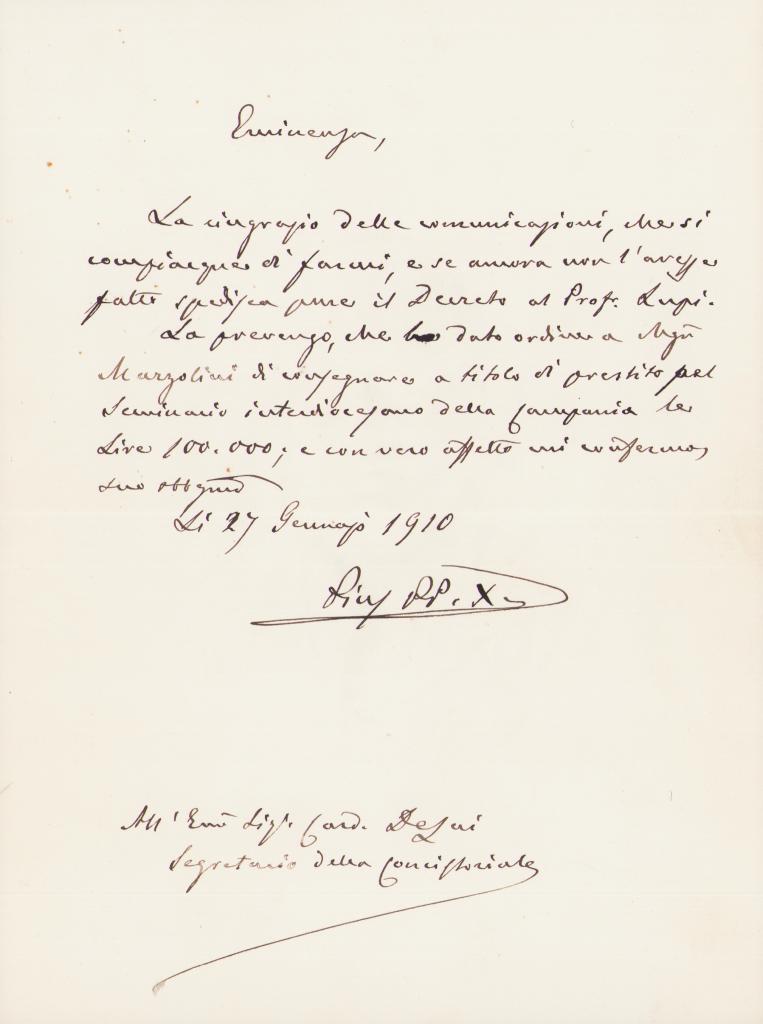 Eminenza,
La ringrazio delle comunicazioni, che si
compiacque di farmi, e se ancora non l'avesse
fatto spedisca pure il Decreto al Prof. Lupi.
La prevengo, che ho dato ordine a Mgr
Marzolini di consegnare a titolo di prestito pel
Seminario interdiocesano della Campania le
Lire 100.000; e con vero affetto mi confermo
suo obbgmo
Li 27 Gennajo 1910
Pius PP. X.
All' Emo Sigr. Card. DeLai
Segretario della Concistoriale